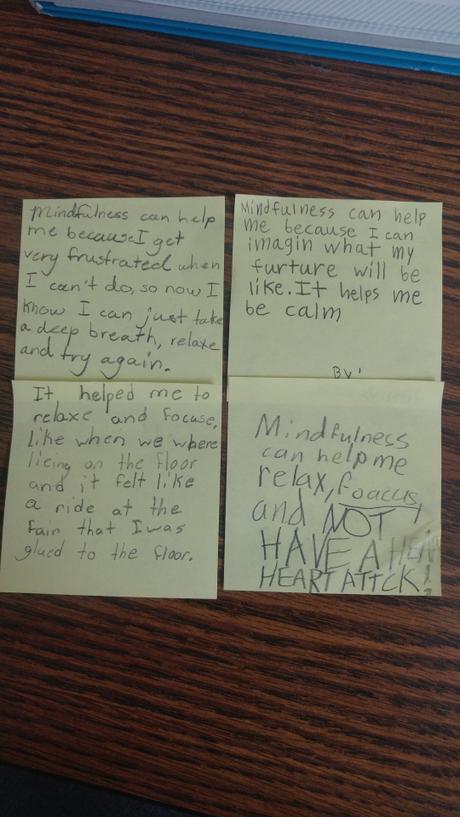 Mindfulness can help
me because I get
very frustrated when
I can't do, so now I
know I can just take
a deep breath, relaxe
and try again.
Mindfulness can help
me because I can
imagin what my
furture will be
like. It helps me
be calm
By:
It helped me to
relaxe and focuse,
like when we where
lieing on the floor
and it felt like
a ride at the
fain that I was
glued to the floor.
Mindfulness
can help me
relax, foaccus
and NOT
HAVE A HEA
HEART ATTCK!